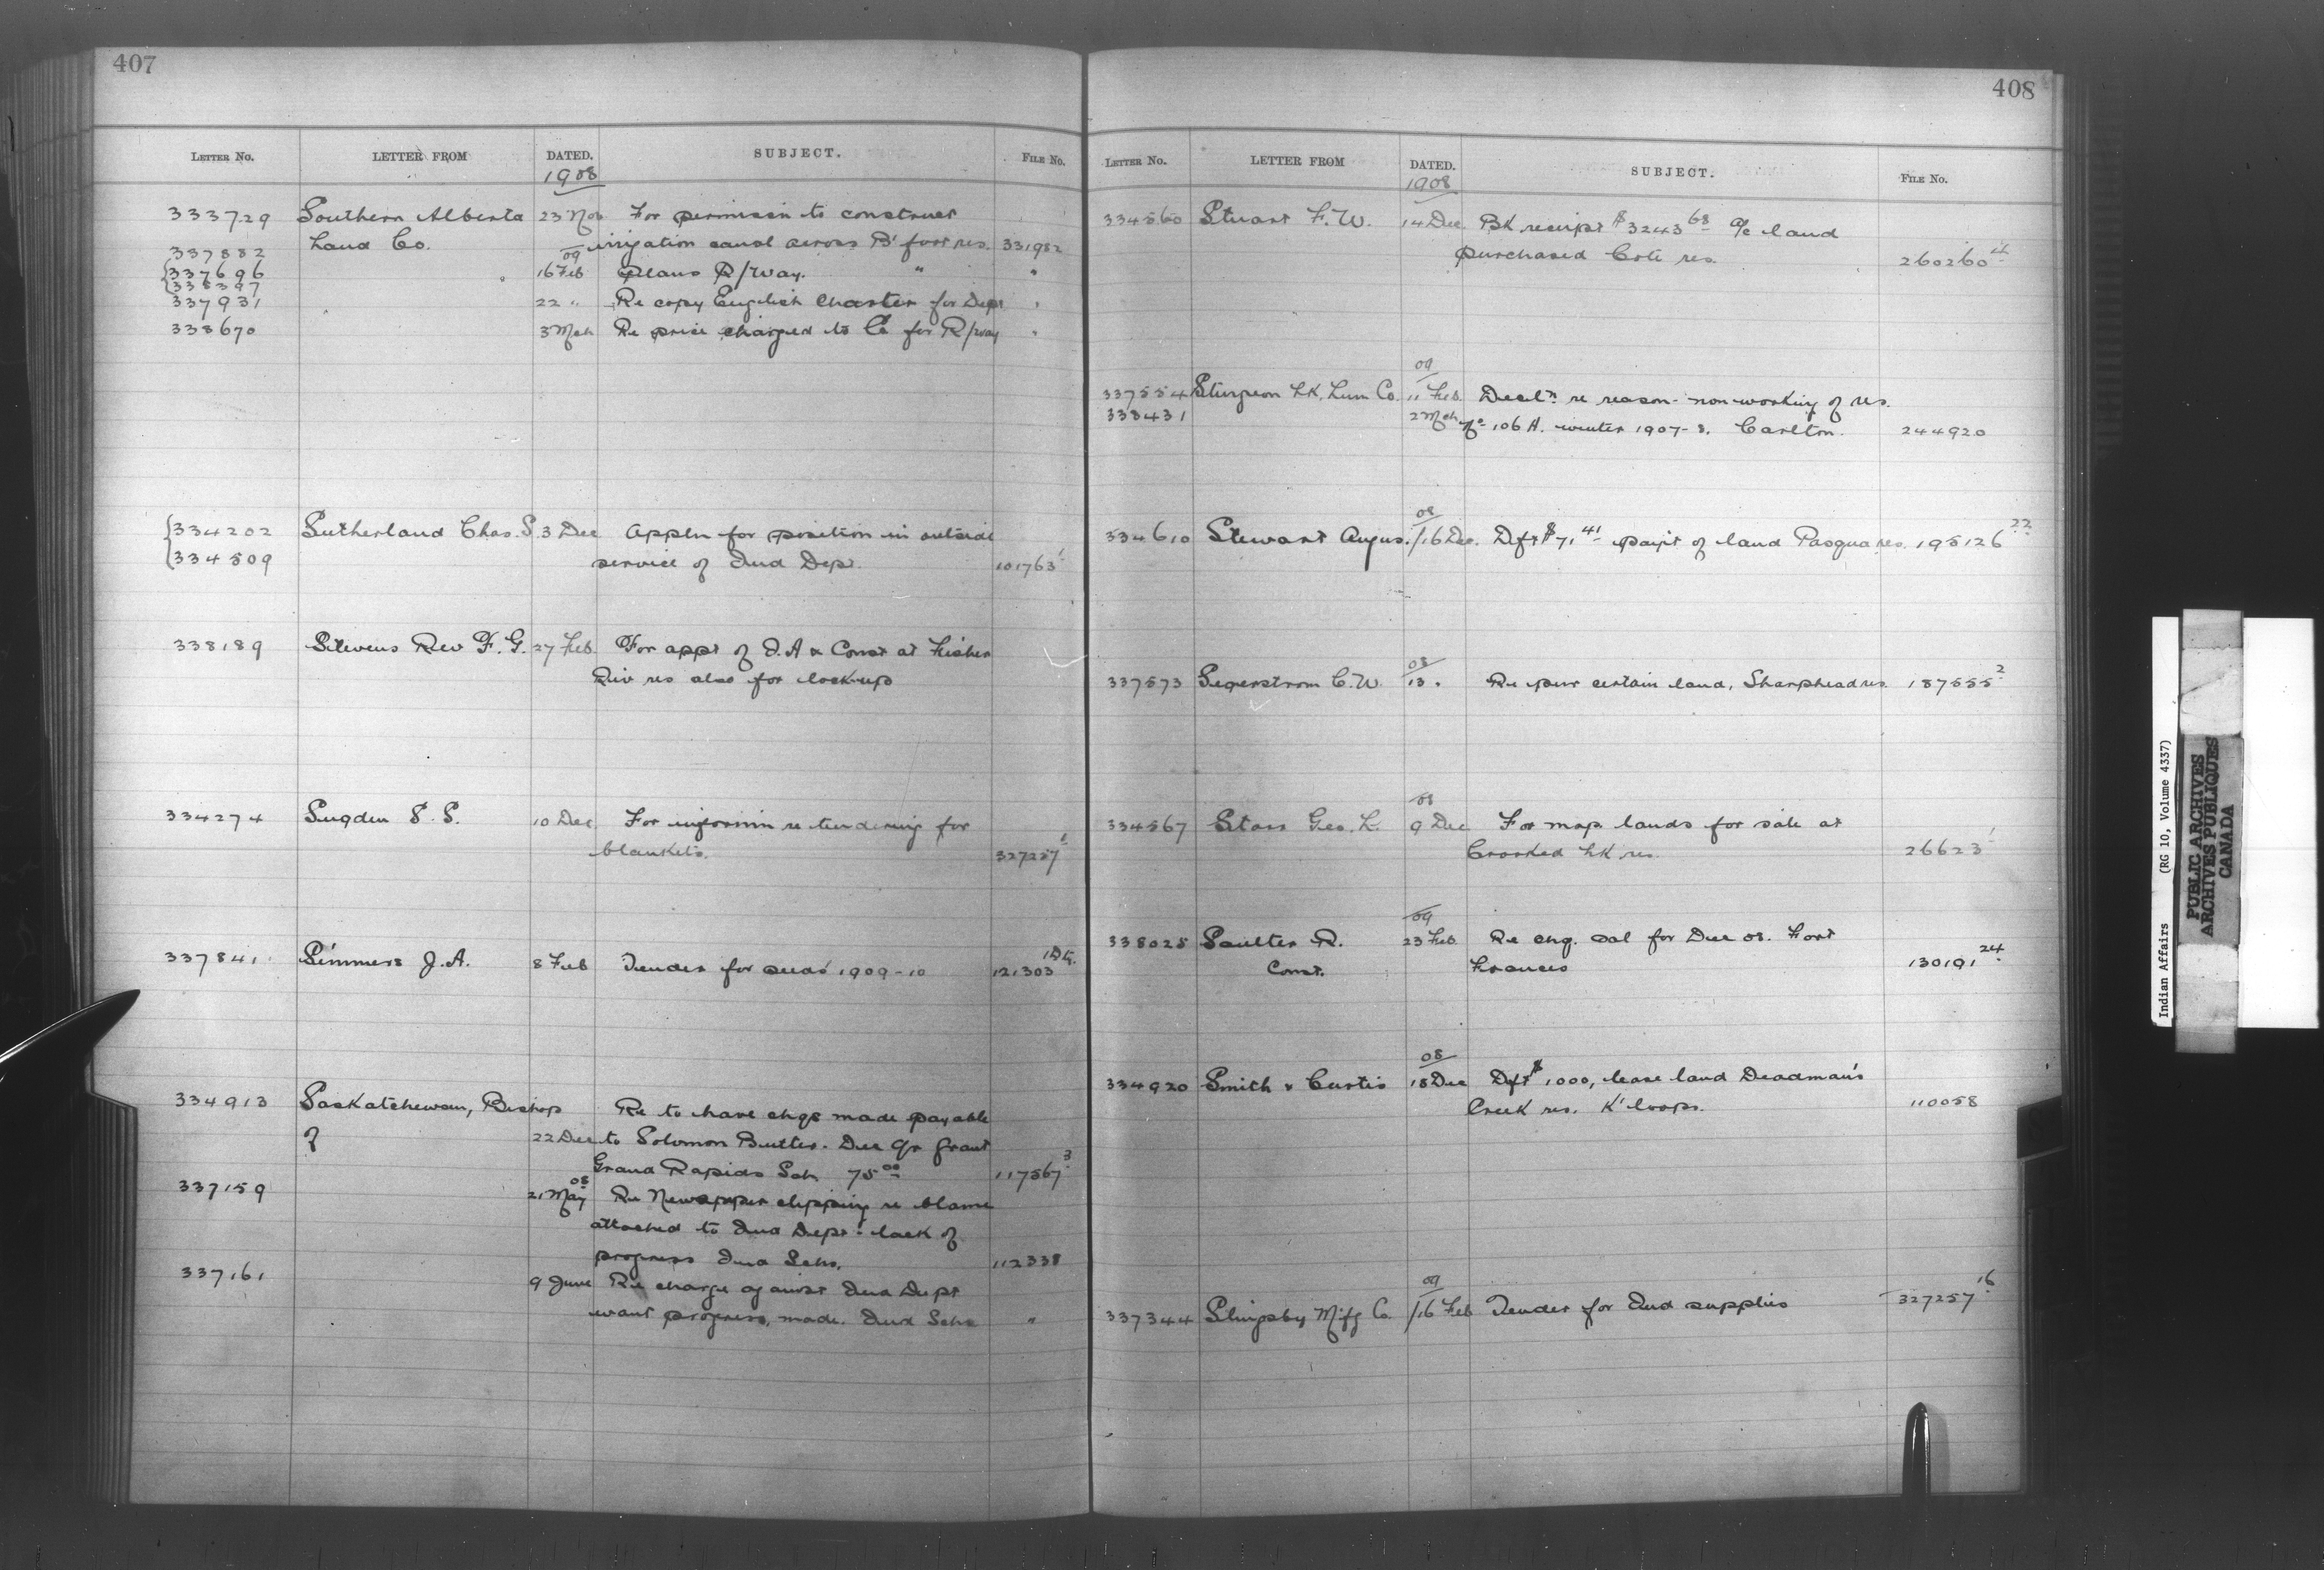 407
LETTER No. LETTER FROM DATED. SUBJECT. FILE No.
1908
333729 Southern Alberta 23 Nov For permissn to construct
337882 Land Co. irrigation canal across B'foot res. 331982
09
{337696 16 Feb Plans R/way. " "
{338397
337931 22 " Re copy English Charter for Dept "
338670 3 Mch Re price charged to Co for R/way "
{334202 Sutherland Chas. S. 3 Dec Appln for position in outside
{334509 service of Ind Dept. 101763 1
338189 Stevens Rev F. G. 27 Feb. For appt of I.A & Const at Fisher
Riv res also for lock-up
334274 Sugden S. S. 10 Dec For informn re tendering for
blankets. 327257
337841 Simmers J. A. 8 Feb Tender for seeds 1909-10 121303
334913 Saskatchewan, Bishop Re to have chqs made payable
of 22 Dec to Solomon Butler. Dec qr grant
Grand Rapids Sch 75 00 117567 3
08
337159 21 May Re Newspaper clipping re blame
attached to Ind Dept: lack of
progress Ind Schs. 112338
337161 9 June Re charge against Ind Dept
want progress, made. Ind Schs "
408
LETTER No. LETTER FROM DATED. SUBJECT. FILE No.
1908
334560 Stuart F. W. 14 Dec. Bk receipt $3243 68 a/c land
purchased Cote res. 260260 4
09
337554 Sturgeon Lk. Lum Co. 11 Feb. Decln re reason non-working of res.
338431 2 Mch No 106A. winter 1907-8. Carlton. 244920
08
334610 Stewart Angus. 16 Dec. Dft $71 41 paymt of land Pasqua res. 195126 22
08
337573 Segerstrom C. W. 13 " Re pur certain land, Sharphead res. 187555 2
08
334567 Stass Geo. L. 9 Dec For map lands for sale at
Crooked Lk res. 26623 1
09
338025 Saulter R. 23 Feb. Re chq. sal for Dec 08. Fort
Const. Frances 130191 24
08
334920 Smith & Curtis 18 Dec Dft $1000, lease land Deadman's
Creek res. K'loops. 110058
09
337344 Slingsby Mfg Co. 16 Feb Tender for Ind supplies 327257 16
Indian Affairs (RG 10, Volume 4337)
PUBLIC ARCHIVES
ARCHIVES PUBLIQUES
CANADA